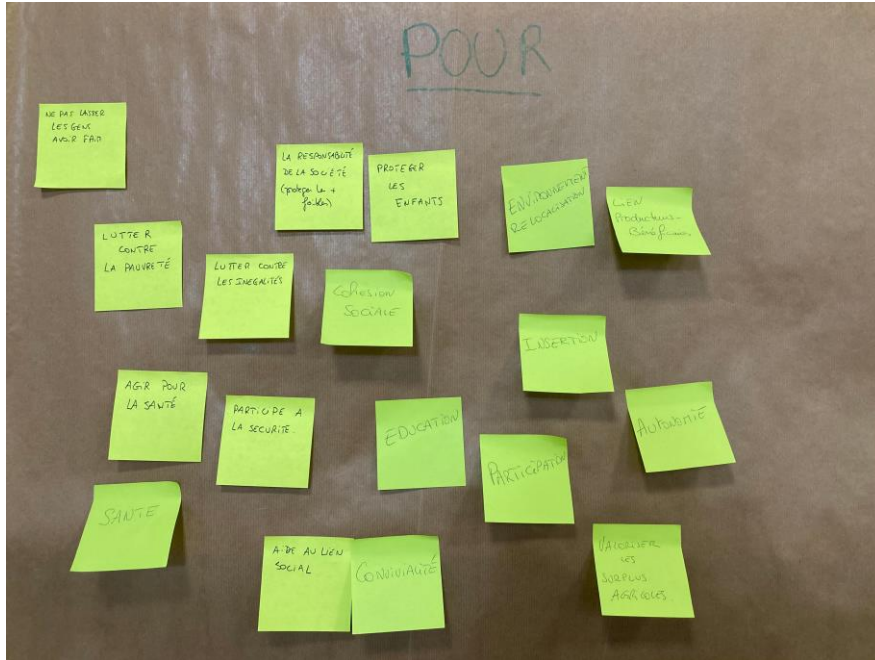 POUR
NE PAS LAISSER
LES GENS
AVOIR FAIM
LA RESPONSABILITÉ
DE LA SOCIÉTÉ
(protéger les +
faibles)
PROTEGER
LES
ENFANTS
ENVIRONNEMENT
RELOCALISATION
LIEN
Producteurs-
Bénéficiaires
LUTTER
CONTRE
LA PAUVRETÉ
LUTTER CONTRE
LES INEGALITÉS
COHESION
SOCIALE
INSERTION
AGIR POUR
LA SANTÉ
PARTICIPE A
LA SECURITE.
EDUCATION
PARTICIPATION
AUTONOMIE
SANTE
AIDE AU LIEN
SOCIAL
CONVIVIALITÉ
VALORISER
LES
SURPLUS
AGRICOLES